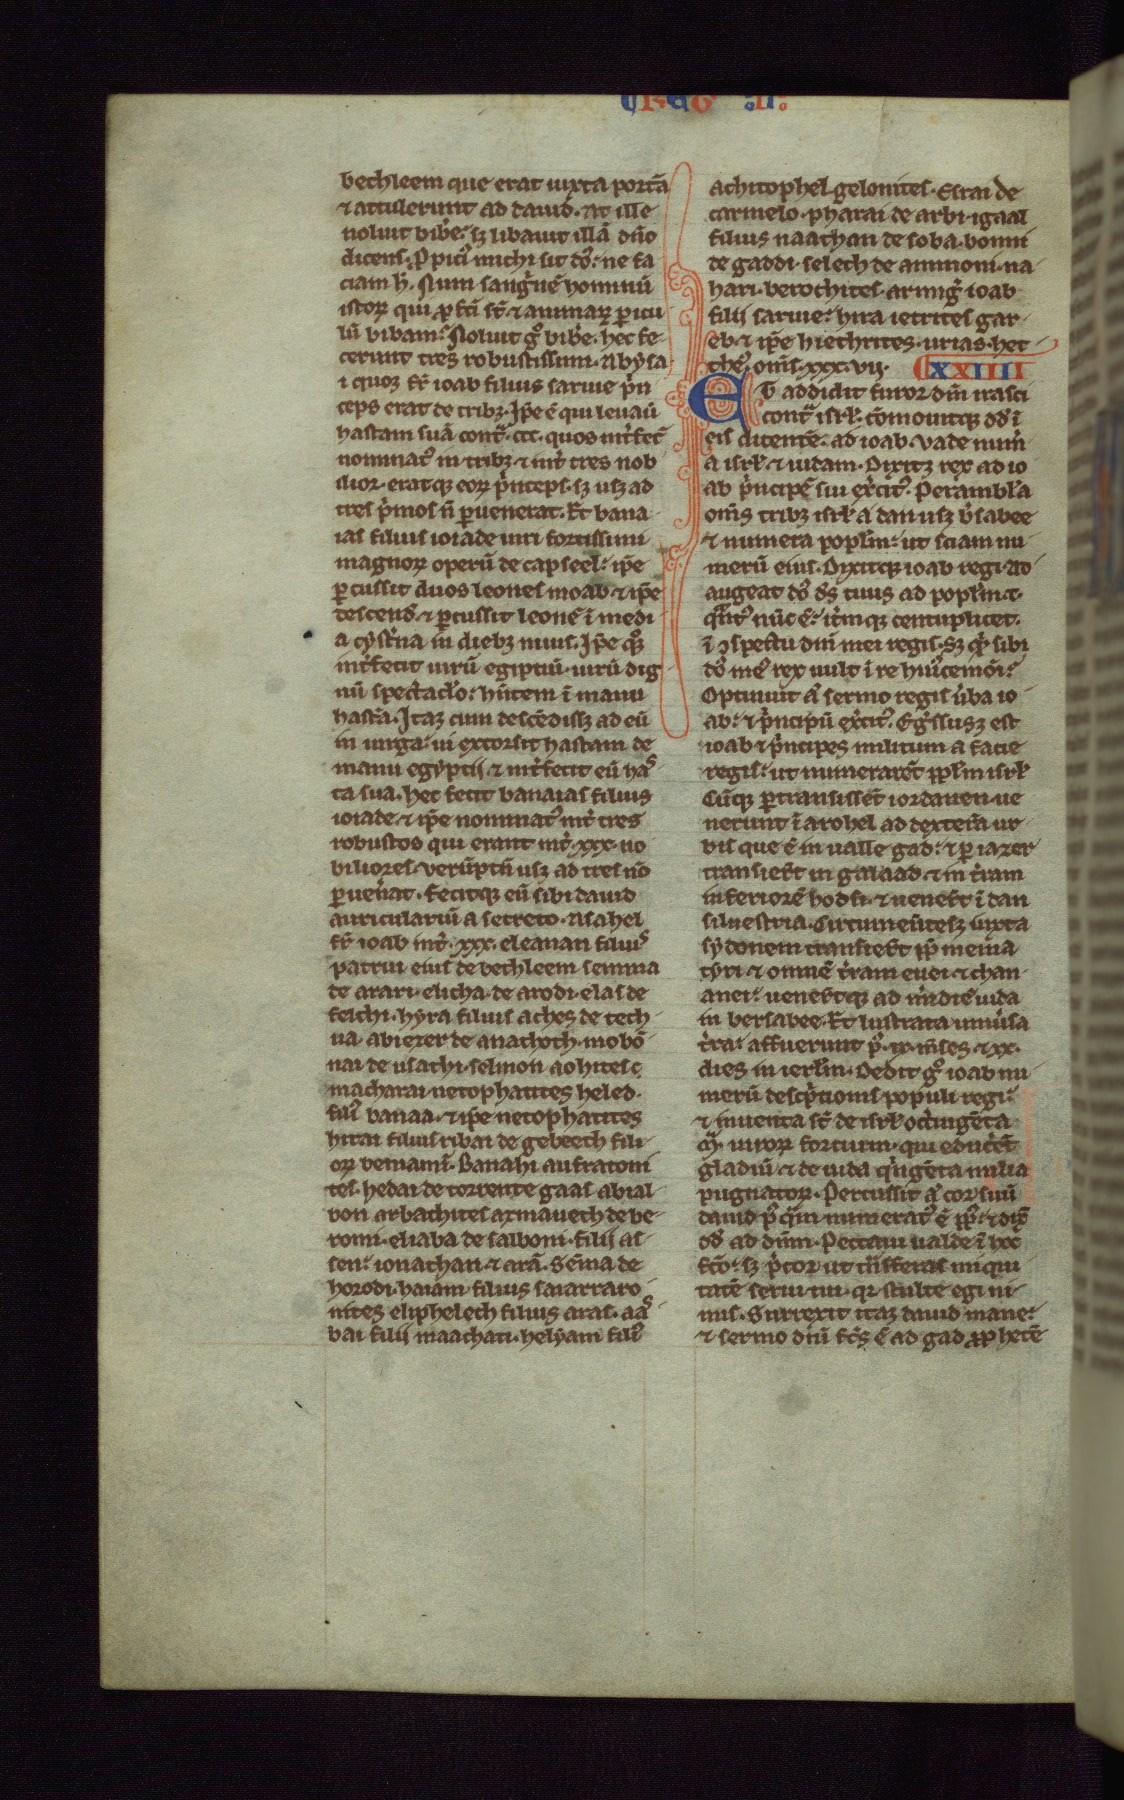 bethleem que erat iuxta portã
⁊ attulerunt ad dauid. at ille
noluit bib'e. sꝫ libauit illã dño
dicens. Ꝓpici' michi sit dñs. ne fa
ciam h'. Num sanguinẽ hominũ
istoꝝ qui ꝓfcti st' ⁊ animaꝝ ꝑicu
lũ bibam. Noluit gº bib'e. hec fe
cerunt tres robustissimi. Abysa
i quoqꝫ fr' ioab filius saruie p'n
ceps erat de tribꝫ. Ip̃e ẽ qui leuau'
hastam suã cont̃. ccc. quos int'fec'
nominat' in tribꝫ ⁊ int' tres nob
ilior. eratqꝫ eoꝝ p'nceps. sꝫ usqꝫ ad
tres p'mos ñ ꝑuenerat. Et bana
ias filius ioiade uiri fortissimi
magnoꝝ operũ de capseel. ip̃e
ꝑcussit duos leones moab ⁊ ip̃e
descend' ⁊ ꝑcussit leonẽ ĩ medi
a cyst'na in diebꝫ niuis. Ip̃e qꝫ
int'fecit uirũ egiptiũ. uirũ dig
nũ spectac'lo. hñtem ĩ manu
hastã. Itaqꝫ cum descẽdissꝫ ad eũ
in uirga. ui extorsit hastam de
manu egyptii ⁊ int'fecit eũ has
ta sua. hec fecit banaias filius
ioiade ⁊ ip̃e nominat' int' tres
robustos qui erant int' .xxx. no
biliores. uerũptñ usqꝫ ad tres nõ
ꝑuen'at. fecitqꝫ eũ sibi dauid
auriculariũ a secreto. Asahel
fr' ioab int' .xxx. eleanan filius
patrui eius de bethleem semma
de arari. elicha. de arodi. elas de
felthi. hyra filius aches de tech
ua. abiezer de anathoth. mobõ
nai de usathi. selmon aohites
macharai netophatites heled.
fili' banaa. ⁊ ip̃e netophatites
hitai filius ribai de gebeeth fili
oꝝ beniamĩ. Banahi aufratoni
tes. hedai de torrente gaas abial
bon arbathites azmaueth de be
romi. eliaba de salboni. filii as
sen. ionathan. ⁊ arã. Sẽma de
horodi. haiam filius saiarraro
nites eliphelech filius aras. aas
bai filii maachati. helyam fili'
REG II
achitophel gelonites. Esrai de
carmelo. pharai de arbi. igaal
filius naathan de soba. bonni
de gaddi. selech de ammoni. na
hari. berothites. armig' ioab
filii saruie. hira ietrites gar
eb. ⁊ ip̃e hiethrites. urias. het
the'. om̃s. xxx. vii. XXIIII
Et addidit furor dñi irasci
cont̃ isrł. cõmouitqꝫ dd' ĩ
eis dicentẽ. ad ioab. Vade num'
a isrł ⁊ iudam. Dixitqꝫ rex ad io
ab p'ncipẽ sui ex'cit'. Perambła
om̃s tribꝫ isrł a dan usqꝫ b'sabee
⁊ numera popłm. ut sciam nu
merũ eius. Dixitqꝫ ioab regi. Ad
augeat dñs ds' tuus ad popłm t.
q̃nt' nũc ẽ. it'mqꝫ centuplicet.
ĩ ꝯspectu dñi mei regis. Sꝫ q' sibi
dñs me' rex uult ĩ re hui'cemõi.
Optinuit aut' sermo regis u'ba io
ab. ⁊ p'ncipũ ex'cit'. Eg'ssusqꝫ est
ioab ⁊ p'ncipes militum a facie
regis. ut numerarẽt ppłm isrł
Cũqꝫ ꝑtransissẽt iordanen. ue
nerunt ĩ arohel ad dexterã ur
bis que ẽ in ualle gad. ⁊ ꝑ iazer
transier't in galaad. ⁊ in t'ram
inferiorẽ hodsi. ⁊ uener't ĩ dan
siluestria. Circumeũtesqꝫ iuxta
sydonem transier't ꝓpe menia
tyri ⁊ omnẽ t'ram euei ⁊ chan
anei. uener'tqꝫ ad m'idiẽ iuda
in bersabee. Et lustrata uniu'sa
t'ra. affuerunt p' .ix. m̃ses ⁊ xx.
dies in ierłm. Dedit gº ioab nu
merũ desc'ptionis populi regi.
⁊ inuenta st' de isrł octingẽta
m̃. uiroꝝ fortium. qui educ'ẽt
gladiũ. ⁊ de iuda q'ngẽta milia
pugnatoꝝ. Percussit aut' cor suũ
dauid p' q̃m numerat' ẽ pp's. ⁊ dix'
dd' ad dñm. Peccaui ualde ĩ hoc
fcõ. sꝫ p'cor ut t'nsferas iniqui
tatẽ serui tui. qr' stulte egi ni
mis. Surrexit itaqꝫ dauid mane.
⁊ sermo dñi fc's ẽ ad gad ꝓphetẽ